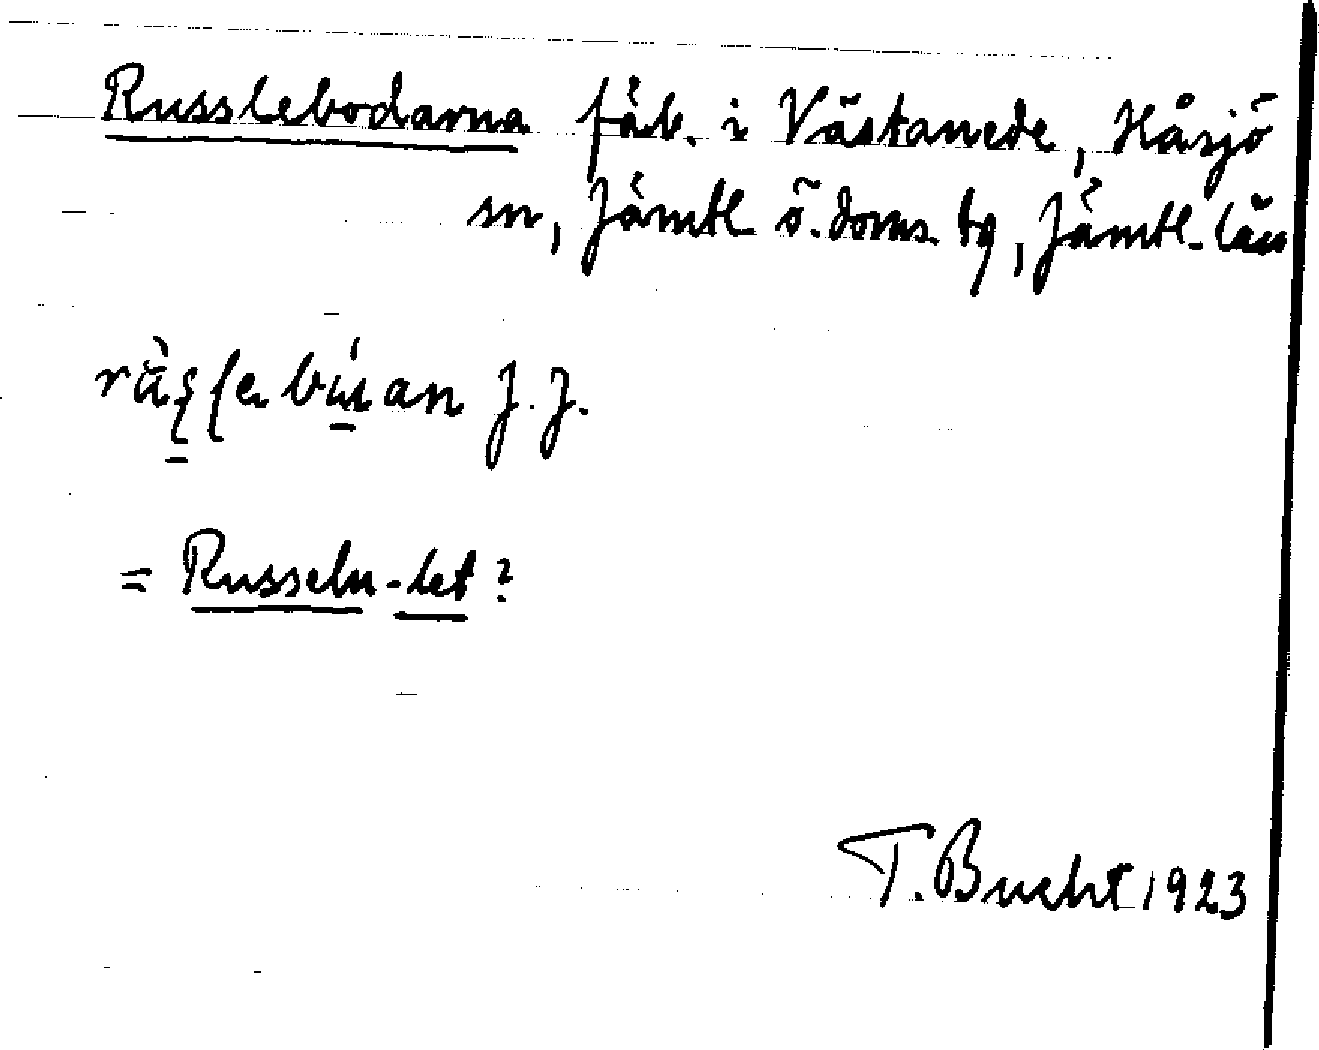 Russlebodarna fäb. i Västanede, Håsjö
sn, Jämtl ö. doms. tg, Jämtl. län
J. J.
= Russeln -let?
T. Bucht 1923